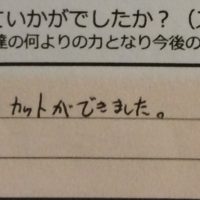 ていかがでしたか？
達の何よりの力となり今後の
カットができました。